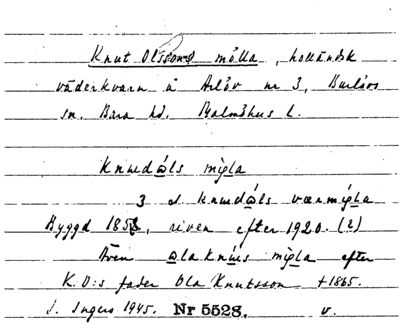 Knut Olssons mölla, holländsk
väderkvarn å Arlöv nr 3, Burlövs
sn. Bara hd. Malmöhus l.
Knudåls mìgla
3 d. knudåls værmígla
Byggd 1858, riven efter 1920. (?)
Även olaknúis mìgla efter
K. O:s fader Ola Knutsson †1865.
I. Ingers 1945. Nr 5528. v.